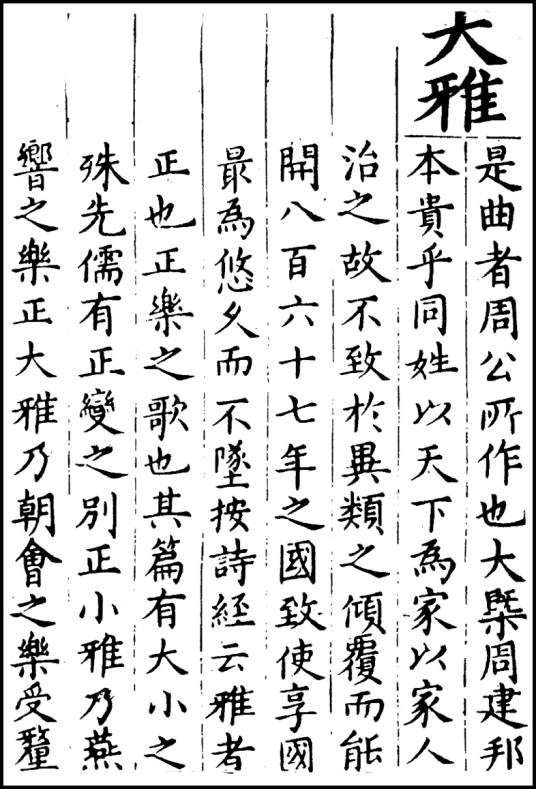 大雅
是曲者周公所作也大槩周建邦
本貴乎同姓以天下為家以家人
治之故不致於異類之傾覆而能
開八百六十七年之國致使享國
最為悠久而不墜按詩經云雅者
正也正樂之歌也其篇有大小之
殊先儒有正變之別正小雅乃燕
響之樂正大雅乃朝會之樂受釐